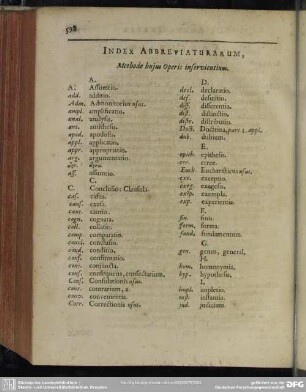 598
INDEX ABBREVIATURARUM,
Methodo hujus Operis inservientium.
A.
A. Assumtio.
add. additio.
Adm. Admonitorius usus.
ampl. amplificatio.
anal. analysis.
ant. antithesis.
apod. apodosis.
appl. applicatio.
appr. appropriatio.
arg. argumentatio.
ass. assumtio.
C.
C. Conclusio: Clausula.
cas. casus.
caus. causa.
caut. cautio.
cogn. cognata.
coll. collatio.
comp. comparatio.
concl. conclusio.
cond. conditio.
conf. confirmatio.
conj. conjuncta.
cons. consequens, consectarium.
Cons. Consolatorius usus.
contr. contrarium, a.
conv. convenientia.
Corr. Correctorius usus.
D.
decl. declaratio.
def. definitio.
diff. differentia.
dist. distinctio.
distr. distributio.
Doct. Doctrina, pars 1. appl.
dub. dubium.
E.
epith. epithesis.
err. error.
Euch. Eucharisticus usus.
exc. exceptio.
exeg. exegesis.
exep. exempla.
exp. experientia.
F.
fin. finis.
form. forma.
fund. fundamentum.
G.
gen. genus, general.
H.
hom. homonymia.
hyp. hypothesis.
I.
impl. impletio.
inst. instantia.
jud. judicium.